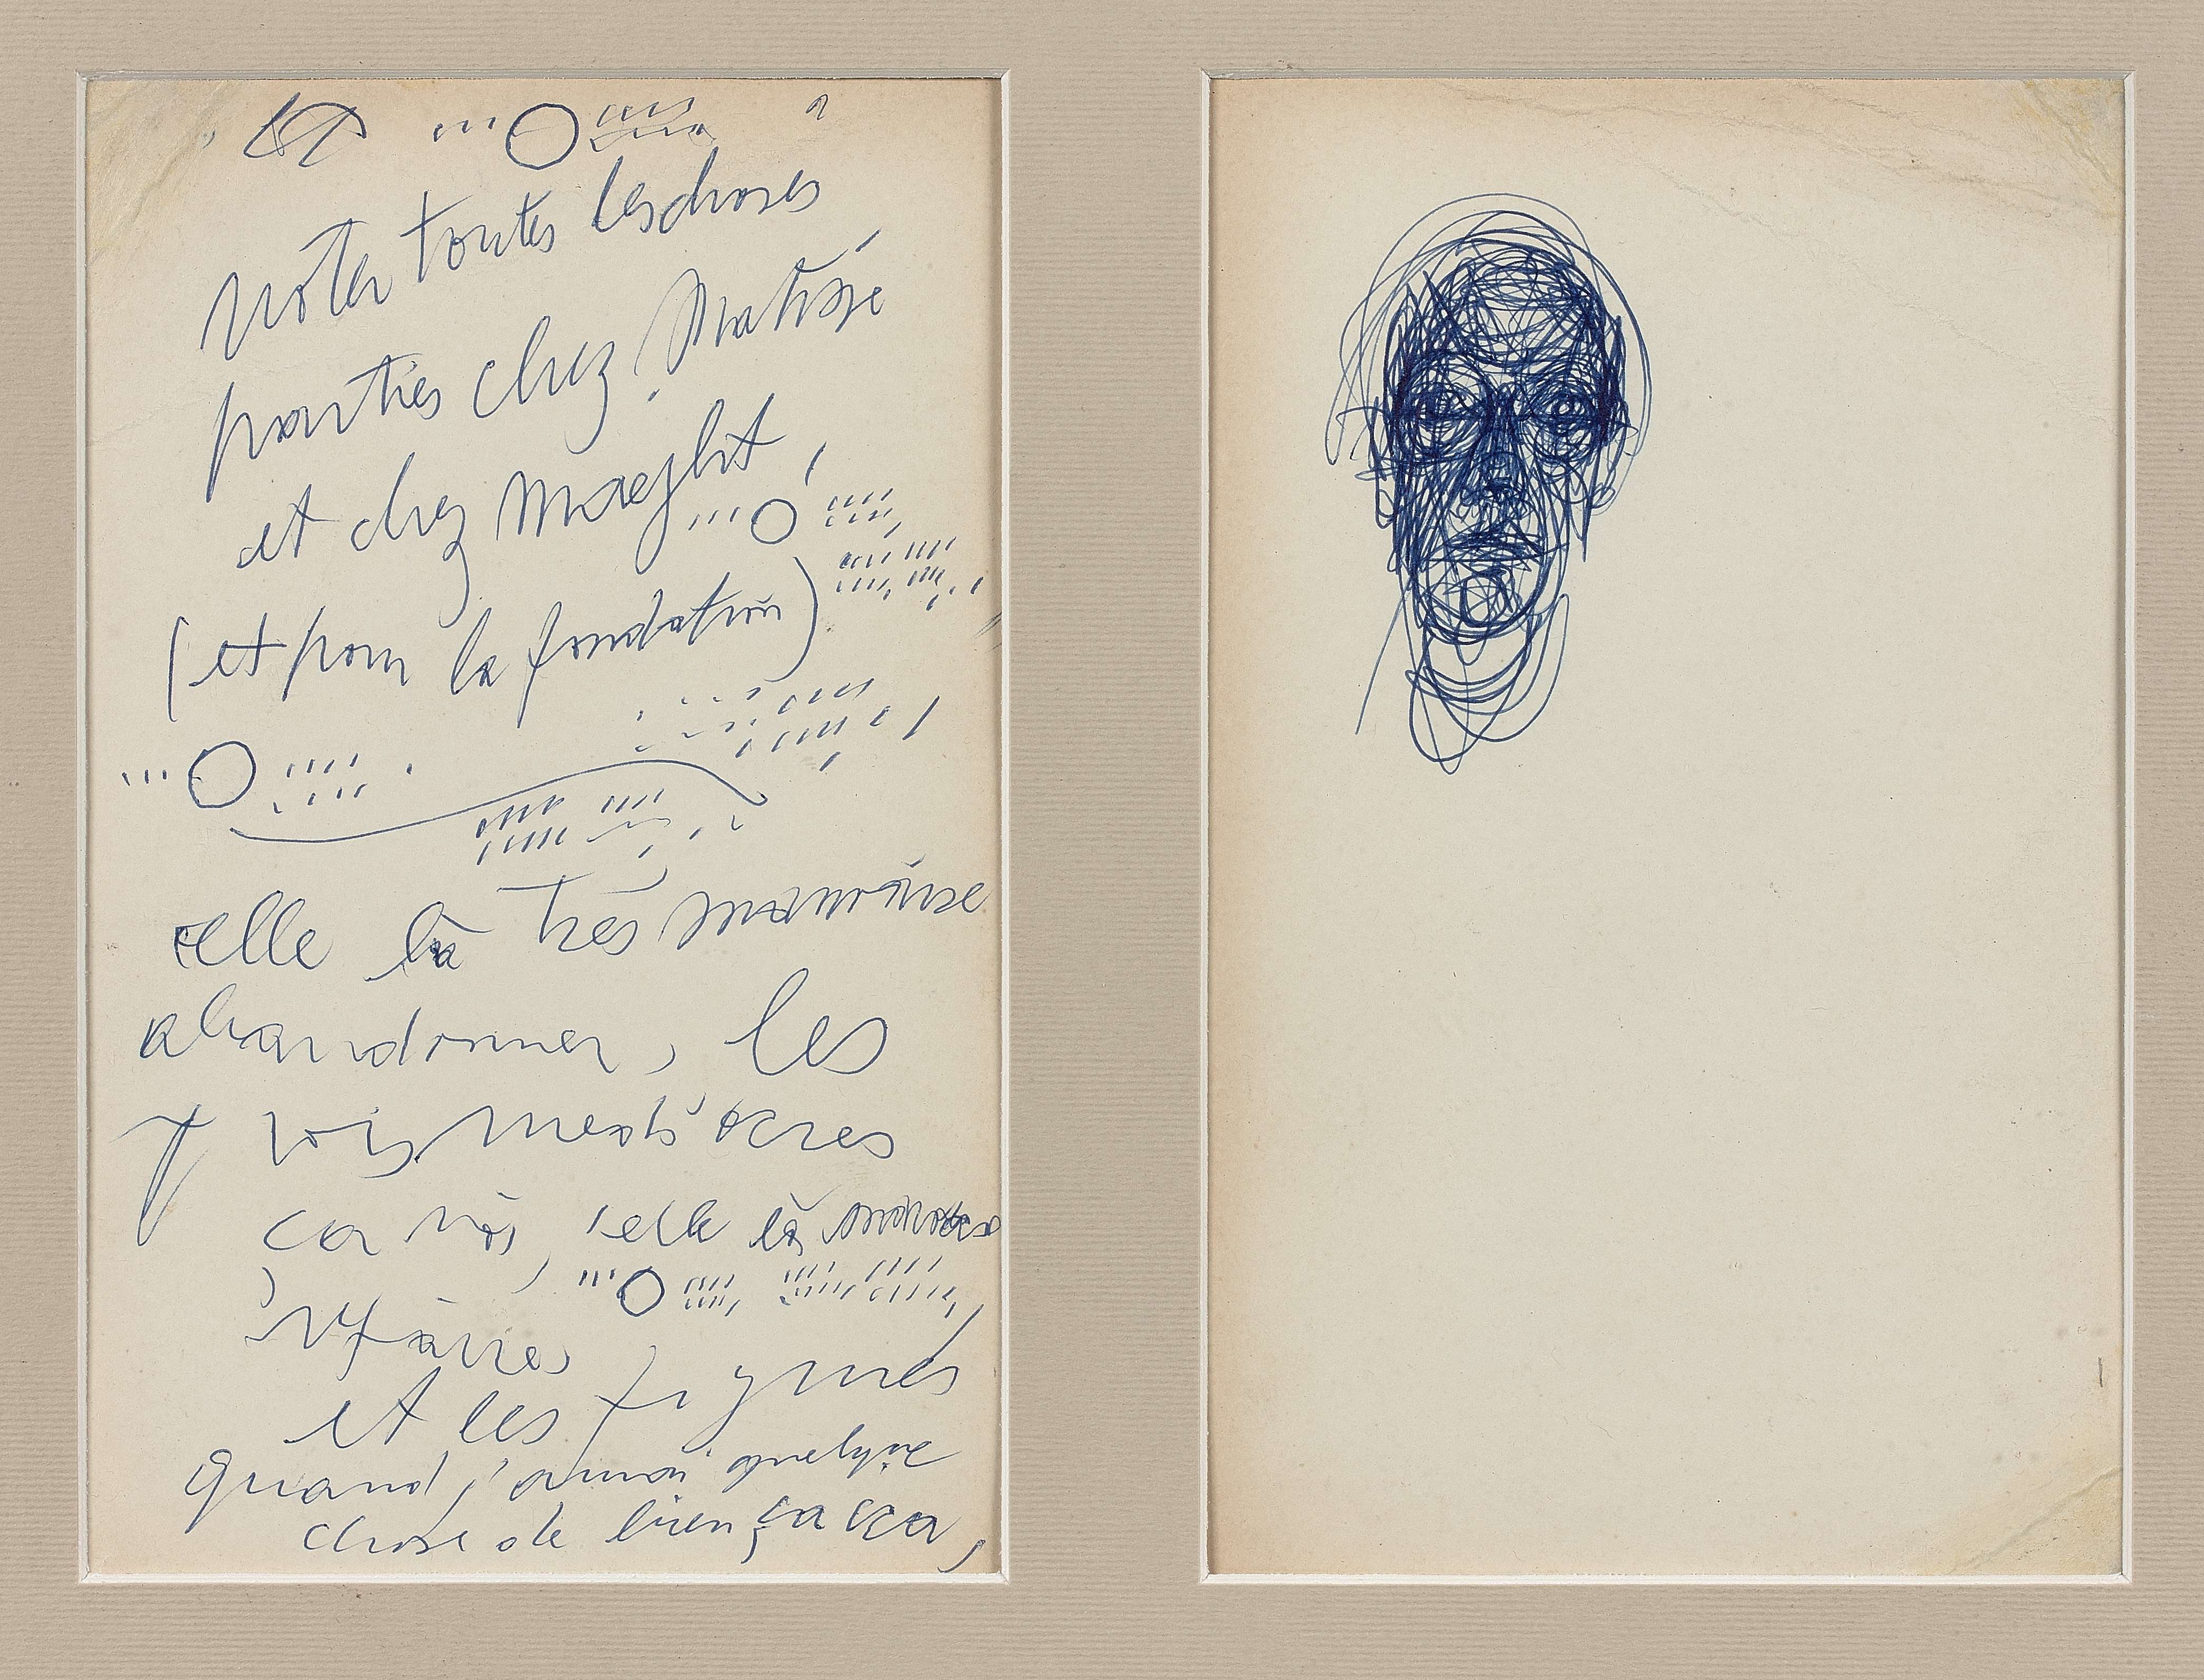 noter toutes les choses
parties chez Matisse
et chez Maeght,
(et pour la fondation)
celle là très mauvaise
abandonner, les
trois médiocres
celle là
et les figures
quand j'aurai quelque
chose de bien, ça va,